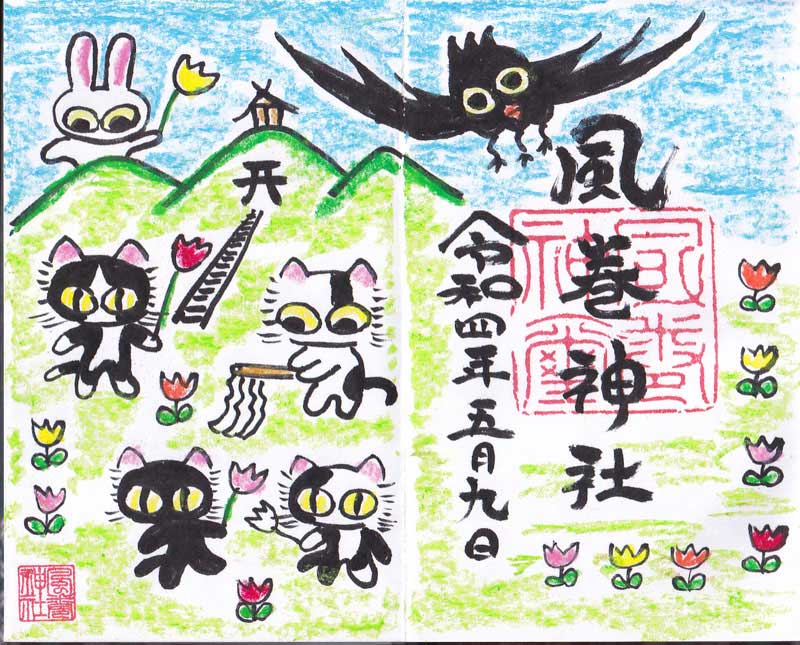 風巻神社
令和四年五月九日
風巻
神社